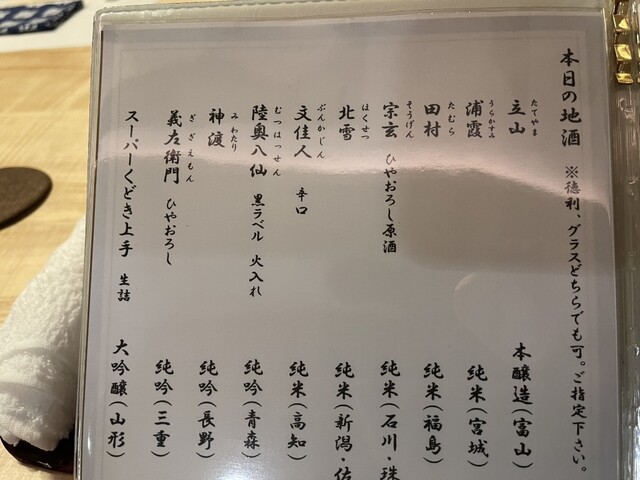 本日の地酒 ※徳利、グラスどちらでも可。ご指定下さい。
たてやま
立山 本醸造(富山)
うらかすみ
浦霞 純米(宮城)
たむら
田村 純米(福島)
そうげん
宗玄 ひやおろし原酒 純米(石川・珠
ほくせつ
北雪 純米(新潟・佐
ぶんかじん
文佳人 辛口 純米(高知)
むつはっせん
陸奥八仙 黒ラベル 火入れ 純吟(青森)
みわたり
神渡 純吟(長野)
ぎざえもん
義左衛門 ひやおろし 純吟(三重)
スーパーくどき上手 生詰 大吟醸(山形)